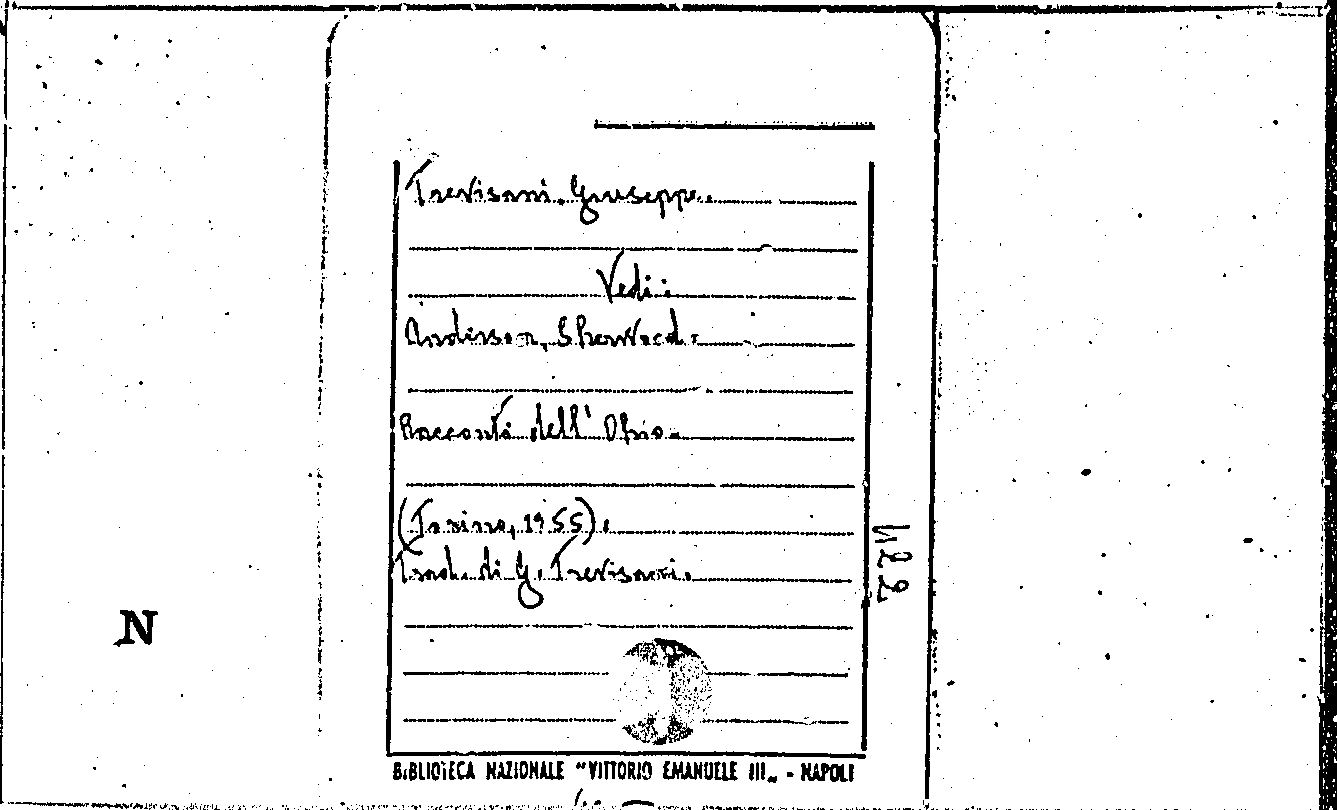 Trevisani Giuseppe.
Vedi:
Anderson, Sherwood.
Racconti dell'Ohio.
(Torino, 1955).
Trad. di G. Trevisani.
422
N
BIBLIOTECA NAZIONALE "VITTORIO EMANUELE III„ - NAPOLI